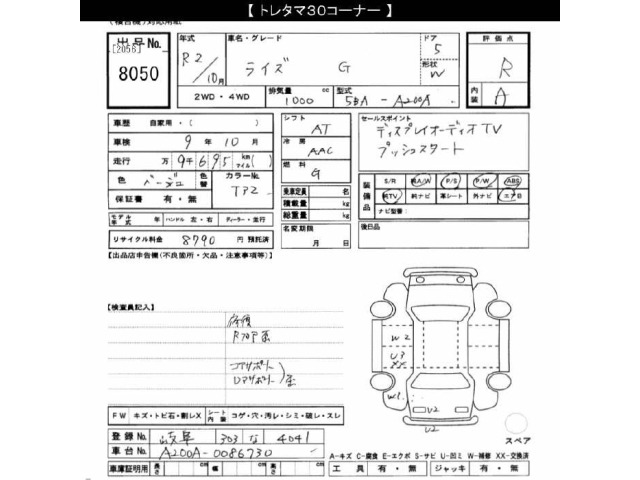 【 トレタマ30コーナー 】
(検合機)対応用紙
出品No.
[2056]
8050
年式
R2/10月
車名・グレード
ライズ G
ドア
5
形状
W
2WD・4WD
排気量
1000 cc
型式
5BA-A200A
評価点
R
内装
A
車歴 自家用・( )
車検 9年10月
走行 万9千695 km マイル( )
色 ベージュ
色替
カラーNo.
T32
保証書 有・無
シフト
AT
冷房
AAC
燃料
G
乗車定員 名
積載量 kg
総重量 kg
セールスポイント
ディスプレイオーディオTV
プッシュスタート
装備品
S/R 純A/W P/S P/W ABS
純TV 純ナビ 革シート 外ナビ エアB
ナビ型番:
モデル年式 年 ハンドル 左・右 ディーラー・並行
名変期限
月 日
後日品
リサイクル料金 8790 円 預託済
【出品店申告欄(不良箇所・欠品・注意事項等)】
【検査員記入】
修復
コアサポート
W2
U3
XX
W1
U2
U2
FW キズ・トビ石・割レX シート内装 コゲ・穴・汚レ・シミ・破レ・スレ
スペア
登録No. 岐阜 303 な 4041
車台No. A200A-0086730
A-キズ C-腐食 E-エクボ S-サビ U-凹ミ W-補修 XX-交換済
車庫証明用 長さ cm 幅 cm 高さ cm
工具 有・無 ジャッキ 有・無